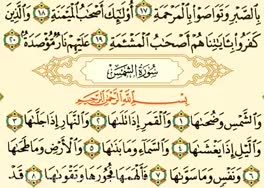 بِٱلصَّبْرِ وَتَوَاصَوْا۟ بِٱلْمَرْحَمَةِ ١٧ أُو۟لَٰٓئِكَ أَصْحَٰبُ ٱلْمَيْمَنَةِ ١٨ وَٱلَّذِينَ
كَفَرُوا۟ بِـَٔايَٰتِنَا هُمْ أَصْحَٰبُ ٱلْمَشْـَٔمَةِ ١٩ عَلَيْهِمْ نَارٌ مُّؤْصَدَةٌۢ ٢٠
سُورَةُ الشَّمْسِ
بِسْمِ ٱللَّهِ ٱلرَّحْمَٰنِ ٱلرَّحِيمِ
وَٱلشَّمْسِ وَضُحَىٰهَا ١ وَٱلْقَمَرِ إِذَا تَلَىٰهَا ٢ وَٱلنَّهَارِ إِذَا جَلَّىٰهَا ٣
وَٱلَّيْلِ إِذَا يَغْشَىٰهَا ٤ وَٱلسَّمَآءِ وَمَا بَنَىٰهَا ٥ وَٱلْأَرْضِ وَمَا طَحَىٰهَا
٦ وَنَفْسٍ وَمَا سَوَّىٰهَا ٧ فَأَلْهَمَهَا فُجُورَهَا وَتَقْوَىٰهَا ٨ قَدْ